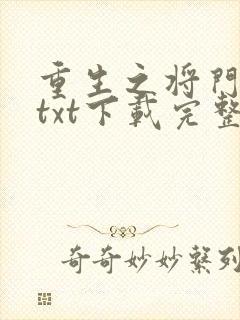 重生之将門
txt下載完整
奇奇妙妙繫列